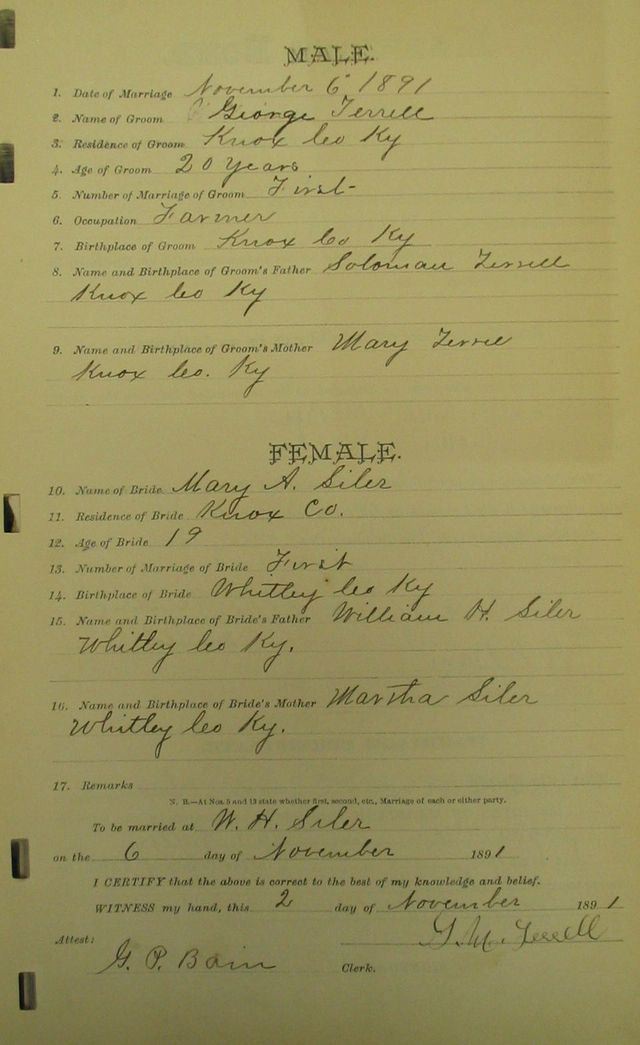 MALE.
1. Date of Marriage November 6 1891
2. Name of Groom George Terrell
3. Residence of Groom Knox Co Ky
4. Age of Groom 20 years
5. Number of Marriage of Groom First
6. Occupation Farmer
7. Birthplace of Groom Knox Co Ky
8. Name and Birthplace of Groom's Father Soloman Terrell
Knox Co Ky
9. Name and Birthplace of Groom's Mother Mary
Knox Co. Ky
FEMALE.
10. Name of Bride Mary A. Siler
11. Residence of Bride Knox Co.
12. Age of Bride 19
13. Number of Marriage of Bride First
14. Birthplace of Bride Whitley Co Ky
15. Name and Birthplace of Bride's Father William H. Siler
Whitley Co Ky.
16. Name and Birthplace of Bride's Mother Martha Siler
Whitley Co Ky.
17. Remarks
N. B.—At Nos. 5 and 13 state whether first, second, etc., Marriage of each or either party.
To be married at W. H. Siler
on the 6 day of November 1891
I CERTIFY that the above is correct to the best of my knowledge and belief.
WITNESS my hand, this 2 day of November 1891
G. M. Terrell
Attest:
G. P. Bain Clerk.